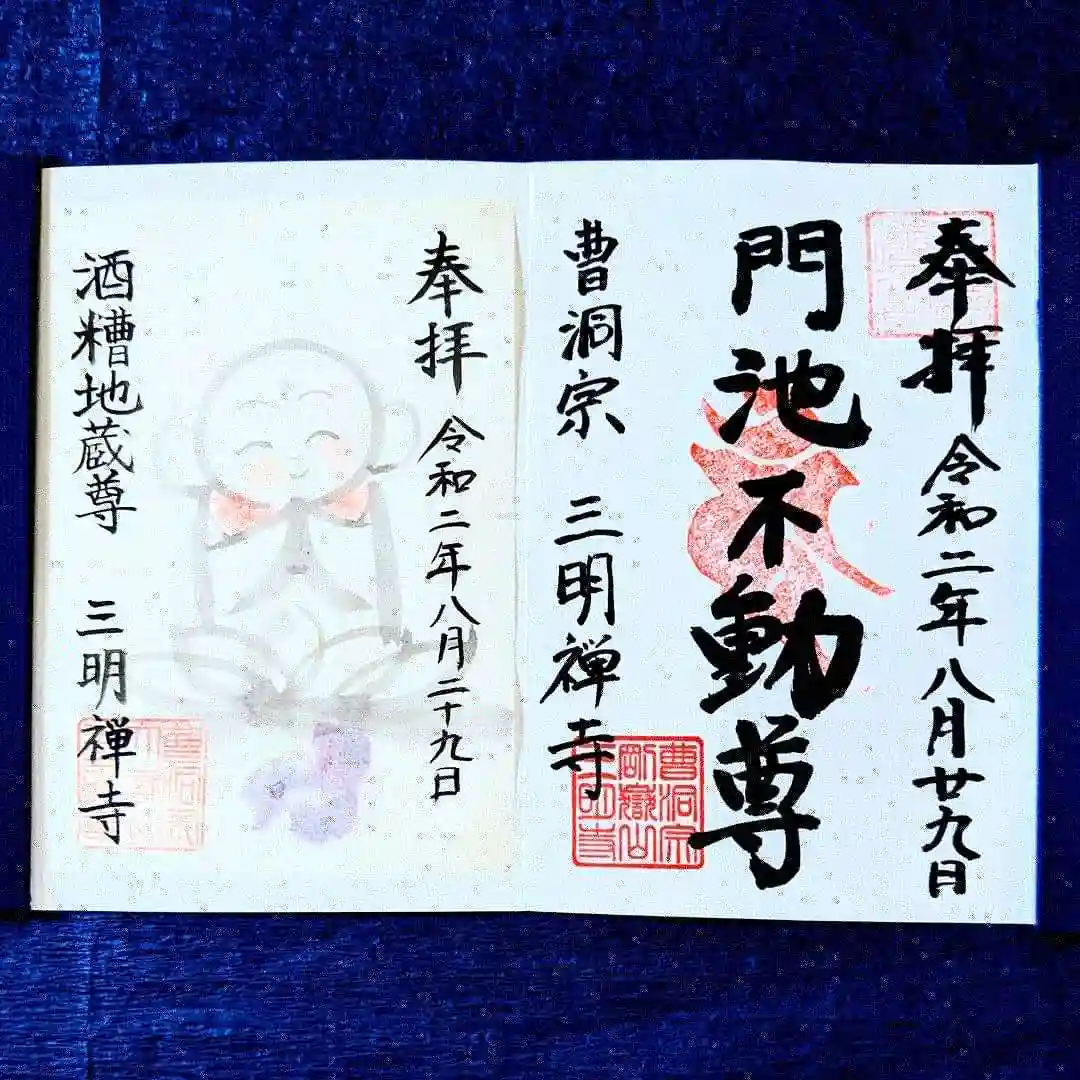 奉拝 令和二年八月廿九日
門池不動尊
曹洞宗 三明禅寺
曹洞宗
奉拝 令和二年八月二十九日
酒糟地蔵尊 三明禅寺